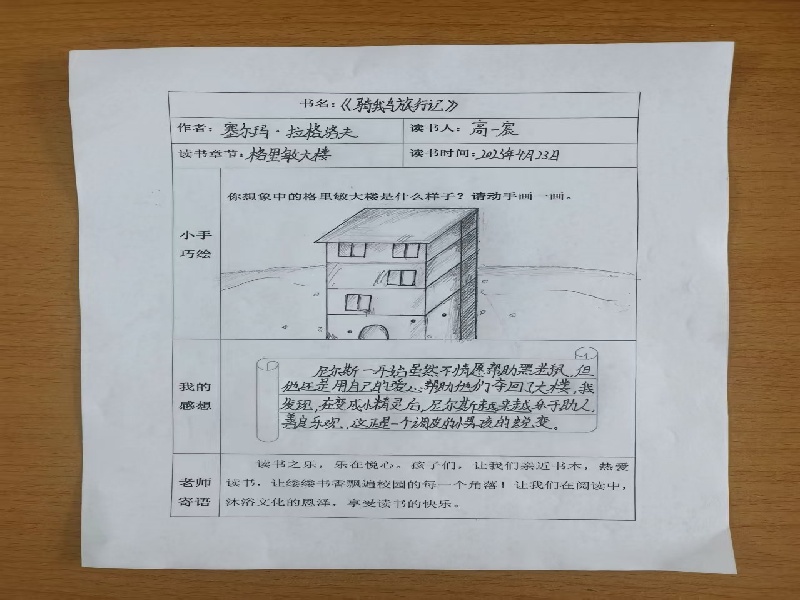 书名：《骑鹅旅行记》
作者：塞尔玛·拉格洛夫 读书人：高一宸
读书章节：格里敏大楼 读书时间：2025年4月23日
你想象中的格里敏大楼是什么样子？请动手画一画。
小手
巧绘
尼尔斯一开始虽然不情愿帮助黑老鼠，但
他还是用自己的爱心帮助他们夺回了大楼，我
发现，在变成小精灵后，尼尔斯越来越乐于助人，
善良乐观，这正是一个调皮的小男孩的蜕变。
我的
感想
读书之乐，乐在悦心。孩子们，让我们亲近书本，热爱
读书，让缕缕书香飘遍校园的每一个角落！让我们在阅读中，
沐浴文化的恩泽，享受读书的快乐。
老师
寄语